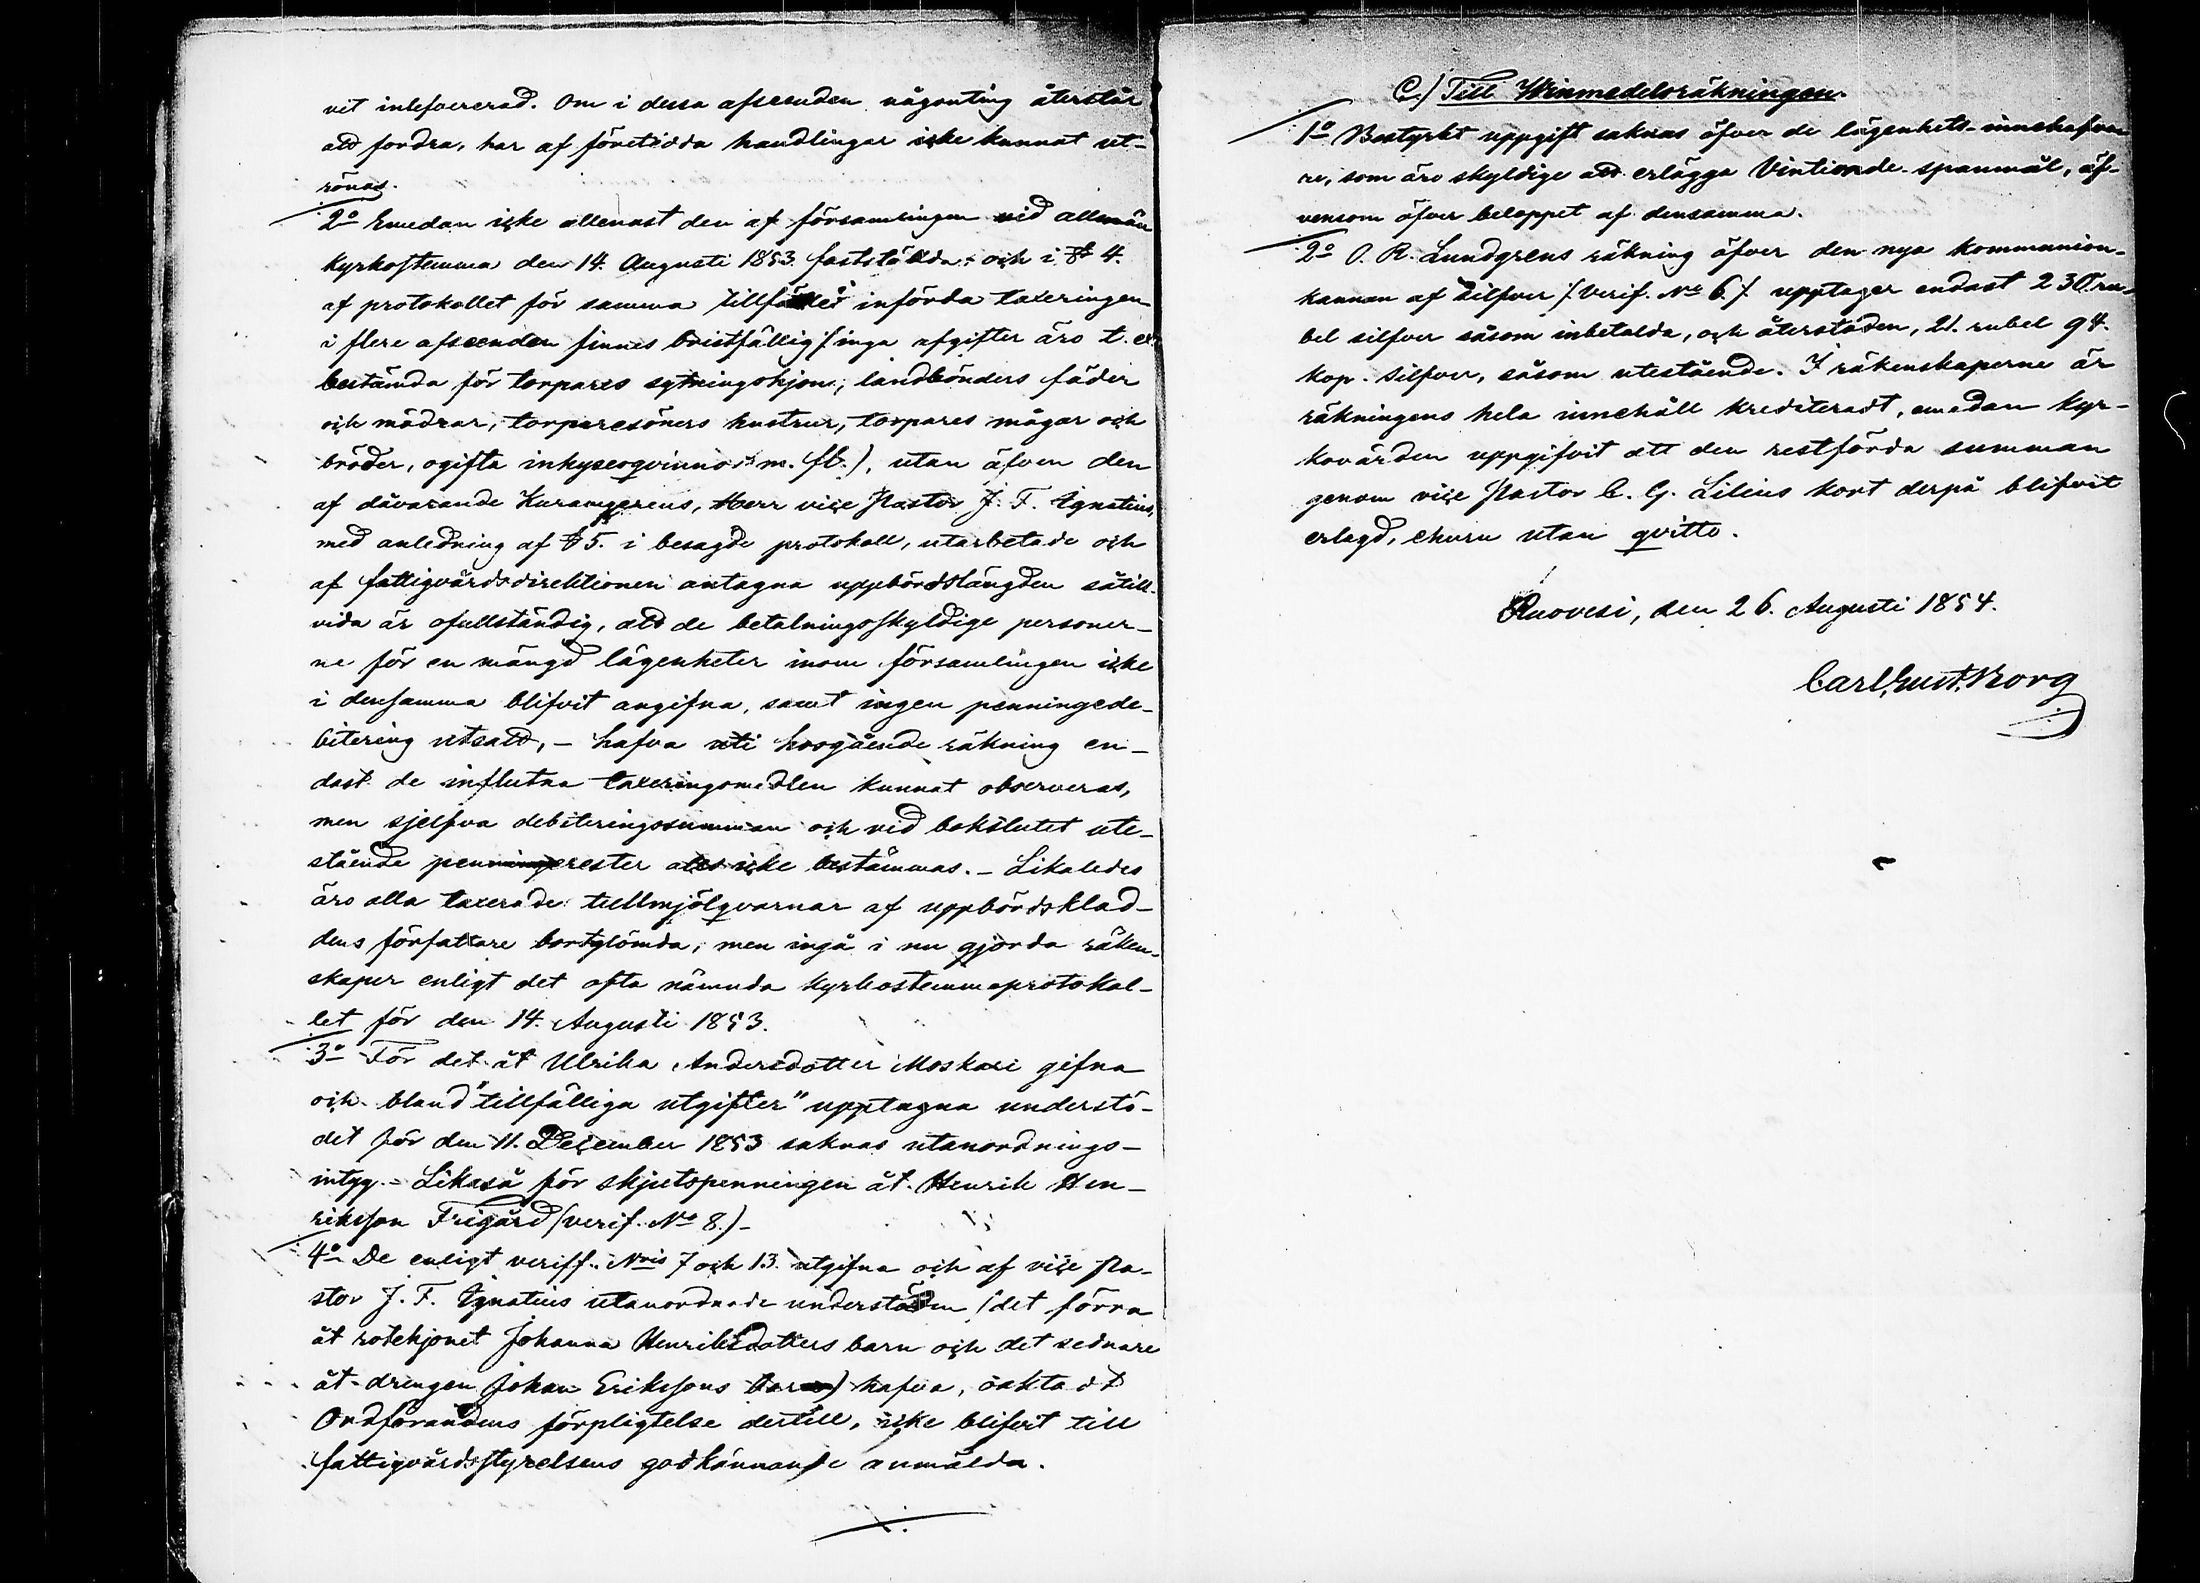 vit inlefvererad. Om i dessa afseenden någonting återstår
att fordra, har af företedda handlingar icke kunnat ut-
rönas.
2o Emedan icke allenast den af församlingen vid allmän
kyrkostemma den 14. Augusti 1853. fastställda och i § 4.
af protokollet för samma tillfället införda taxeringen
i flere afseenden finnes bristfällig (inga afgifter äro t. ex.
bestämda för torpares sytningshjon, landbönders fäder
och mödrar, torparesöners hustrur, torpares mågar och
bröder, ogifta inhyseqvinnor m. fl.), utan äfven den
af dåvarande Kuramgerens, Herr vice Pastor J. F. Ignatius,
med anledning af § 5. i besagde protokoll, utarbetade och
af fattigvårdsdirektionen antagna uppbördslängden såtill-
vida är ofullständig, att de betalningsskyldige personer-
ne för en mängd lägenheter inom församlingen icke
i densamma blifvit angifna, samt ingen penningede-
bitering utsatt, – hafva uti hosgående räkning en-
dast de influtna taxeringsmedlen kunnat observeras,
men sjelfva debiteringssumman och vid bokslutet ute-
stående penningerester icke bestämmas. – Likaledes
äro alla taxerade tullmjölqvarnar af uppbördsklad-
dens författare bortglömda, men ingå i nu gjorda räken-
skaper enligt det ofta nämnda kyrkostemmoprotokol-
let för den 14. Augusti 1853.
3o För det åt Ulrika Andersdotter Moskari gifna
och bland "tillfälliga utgifter" upptagna understö-
det för den 11. December 1853 saknas utanordnings-
intyg. – Likaså för skjutspenningen åt Henrik Hen-
riksson Frigård (verif. No 8.) –
4o De enligt veriff. Nris 7 och 13. utgifna och af vice Pa-
stor J. F. Ignatius utanordnade understöden (det förra
åt rotehjonet Johanna Henriksdotters barn och det sednare
åt drengen Johan Erikssons barn) hafva, oaktadt
Ordförandens förpligtelse dertill, icke blifvit till
fattigvårdsstyrelsens godkännande anmälda.
C.) Till Winmedelsräkningen.
1o Bestyrkt uppgift saknas öfver de lägenhets-innehafva-
re, som äro skyldige att erlägga Vintionde-spanmål, äf-
vensom öfver beloppet af densamma.
2o O. R. Lundgrens räkning öfver den nya kommunion-
kannan af silfver /: verif. No 6 :/ upptager endast 230 ru-
bel silfver såsom inbetalda, och återstoden, 21. rubel 94.
kop. silfver, såsom utestående. I räkenskaperne är
räkningens hela innehåll krediteradt, emedan kyr-
kovärden uppgifvit att den restförda summan
genom vice Pastor C. G. Lilius kort derpå blifvit
erlagd, ehuru utan qvitto.
Ruovesi, den 26. Augusti 1854.
Carl Gust. Borg